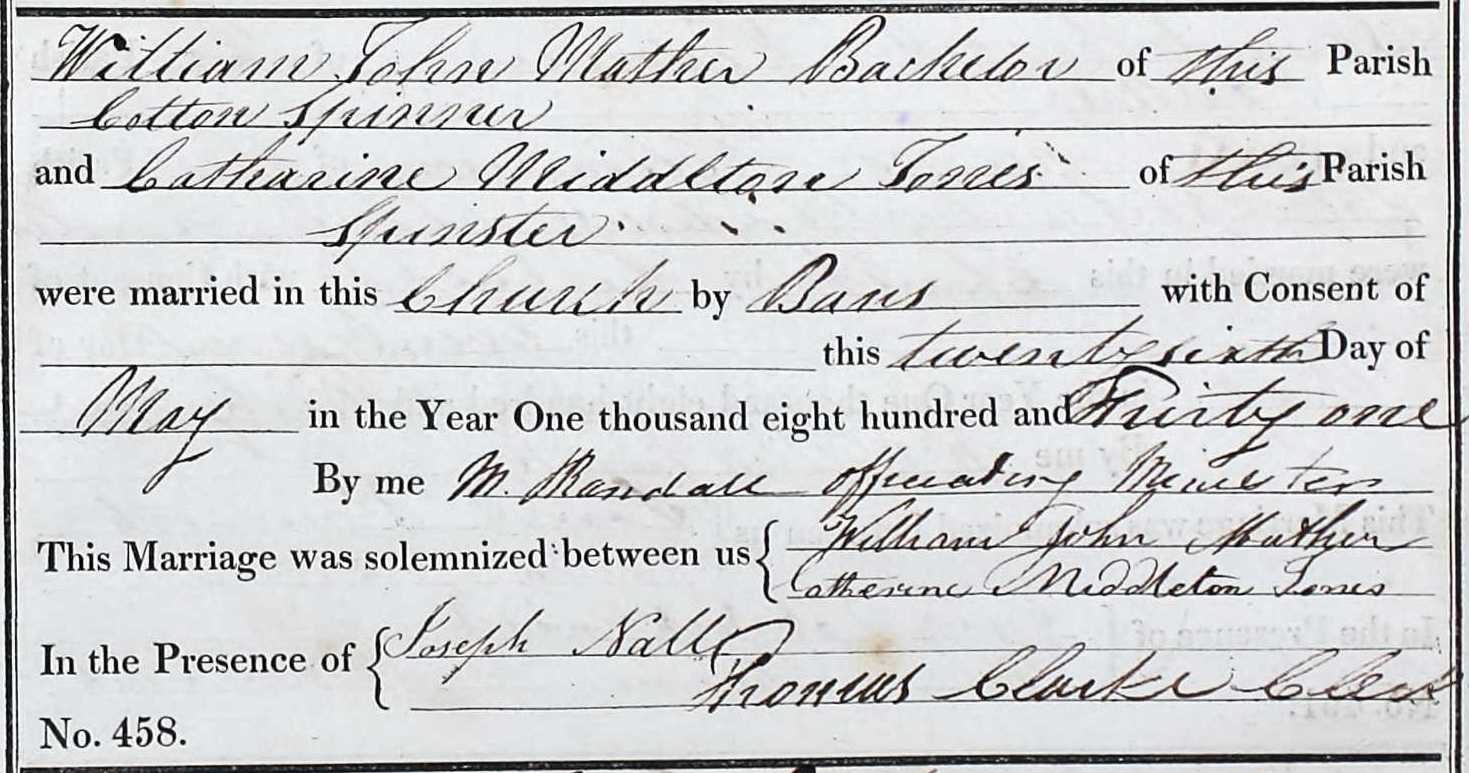 William John Mather Bachelor of this Parish
Cotton Spinner
and Catharine Middleton Jones of this Parish
Spinster
were married in this Church by Bans with Consent of
this twentysixth Day of
May in the Year One thousand eight hundred and Thirty one
By me M. Randall officiating Minister
This Marriage was solemnized between us { William John Mather
Catherine Middleton Jones
In the Presence of { Joseph Nall
Thomas Clarke Clerk
No. 458.